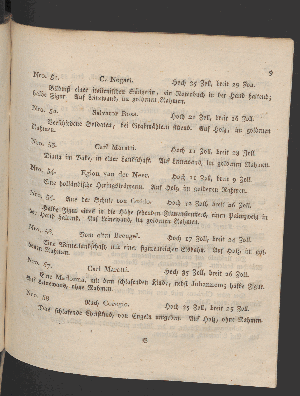 9
Nro. 51. C. Negari. Hoch 25 Zoll, breit 19 Zoll.
Bildniß einer italienischen Sängerin, ein Notenbuch in der Hand haltend;
halbe Figur. Auf Leinewand, im goldenen Rahmen.
Nro. 52. Salvator Rosa. Hoch 21 Zoll, breit 16 Zoll.
Verschiedene Soldaten, bei Grabmählern sitzend. Auf Holz, im goldenen
Rahmen.
Nro. 53. Carl Maratti. Hoch 11 Zoll, breit 13 Zoll.
Maria in Wolke, in einer Landschaft. Auf Leinewand, im goldenen Rahmen.
Nro. 54. Eglon van der Neer. Hoch 11 Zoll, breit 9 Zoll.
Eine holländische Heringskrämerin. Auf Holz, im goldenen Rahmen.
Nro. 55. Aus der Schule von Guido. Hoch 32 Zoll, breit 26 Zoll.
Halbe Figur eines in die Höhe sehenden Frauenzimmers, einen Palmzweig in
der Hand haltend. Auf Leinewand, im goldenen Rahmen.
Nro. 56. Vom alten Breugel. Hoch 17 Zoll, breit 24 Zoll.
Eine Winterlandschaft mit einer figurenreichen Eisbahn. Auf Holz, im
goldenen Rahmen.
Nro. 57. Carl Maratti. Hoch 35 Zoll, breit 26 Zoll.
Eine Madonna, mit dem schlafenden Kinde, nebst Johannes; halbe Figur.
Auf Leinewand, ohne Rahmen.
Nro. 58. Nach Correggio. Hoch 25 Zoll, breit 25 Zoll.
Das schlafende Christkind, von Engeln umgeben. Auf Holz, ohne Rahmen.